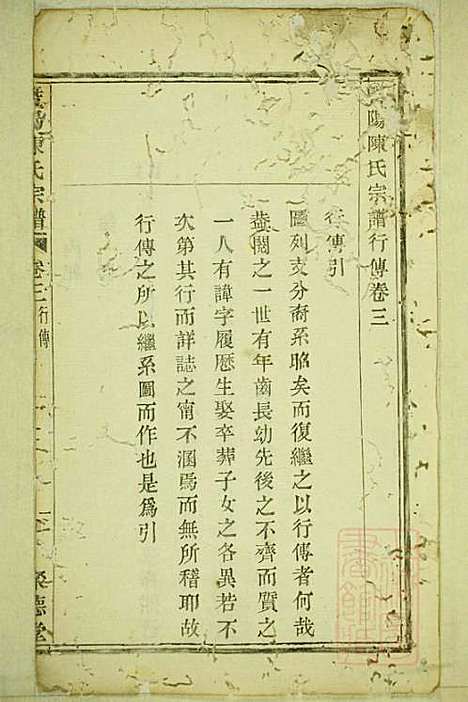 陽陳氏宗譜行傳卷三
行傳引
圖列支分裔系昭矣而復繼之以行傳者何哉
葢閱之一世有年齒長幼先後之不齊而質之
一人有諱字履歷生娶卒葬子女之各異若不
次第其行而詳誌之甯不溷焉而無所稽耶故
行傳之所以繼系圖而作也是爲引
暨陽陳氏宗譜 卷三 行傳
德堂